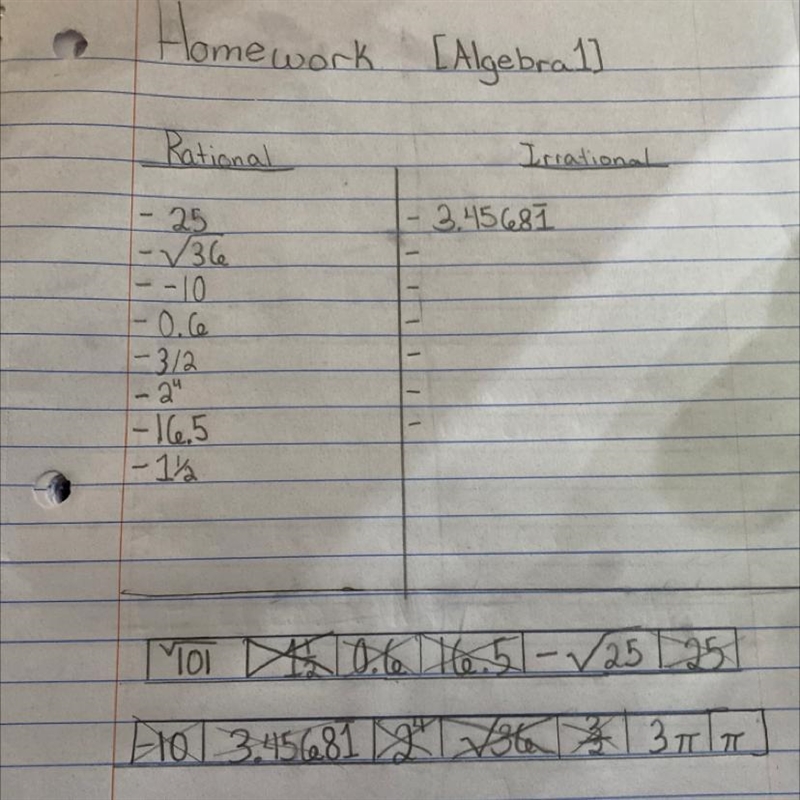 Homework [Algebra 1]
Rational Irrational
- 25 - 3.45681̅
- √36 -
- -10 -
- 0.6 -
- 3/2 -
- 2⁴ -
- 16.5 -
- 1½
√101 1½ 0.6 16.5 -√25 25
-10 3.45681̅ 2⁴ √36 3/2 3π π